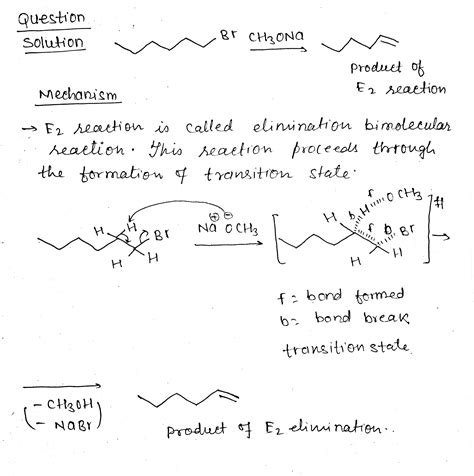 Question
Solution
Br CH3ONa
product of
E2 reaction
Mechanism
→ E2 reaction is called elimination bimolecular
reaction. This reaction proceeds through
the formation of transition state.
H H Br H H
⊕ ⊖
Na OCH3
H b H f OCH3 f b Br H H ‡
f = bond formed
b = bond break
transition state
(- CH3OH
- NaBr)
product of E2 elimination..